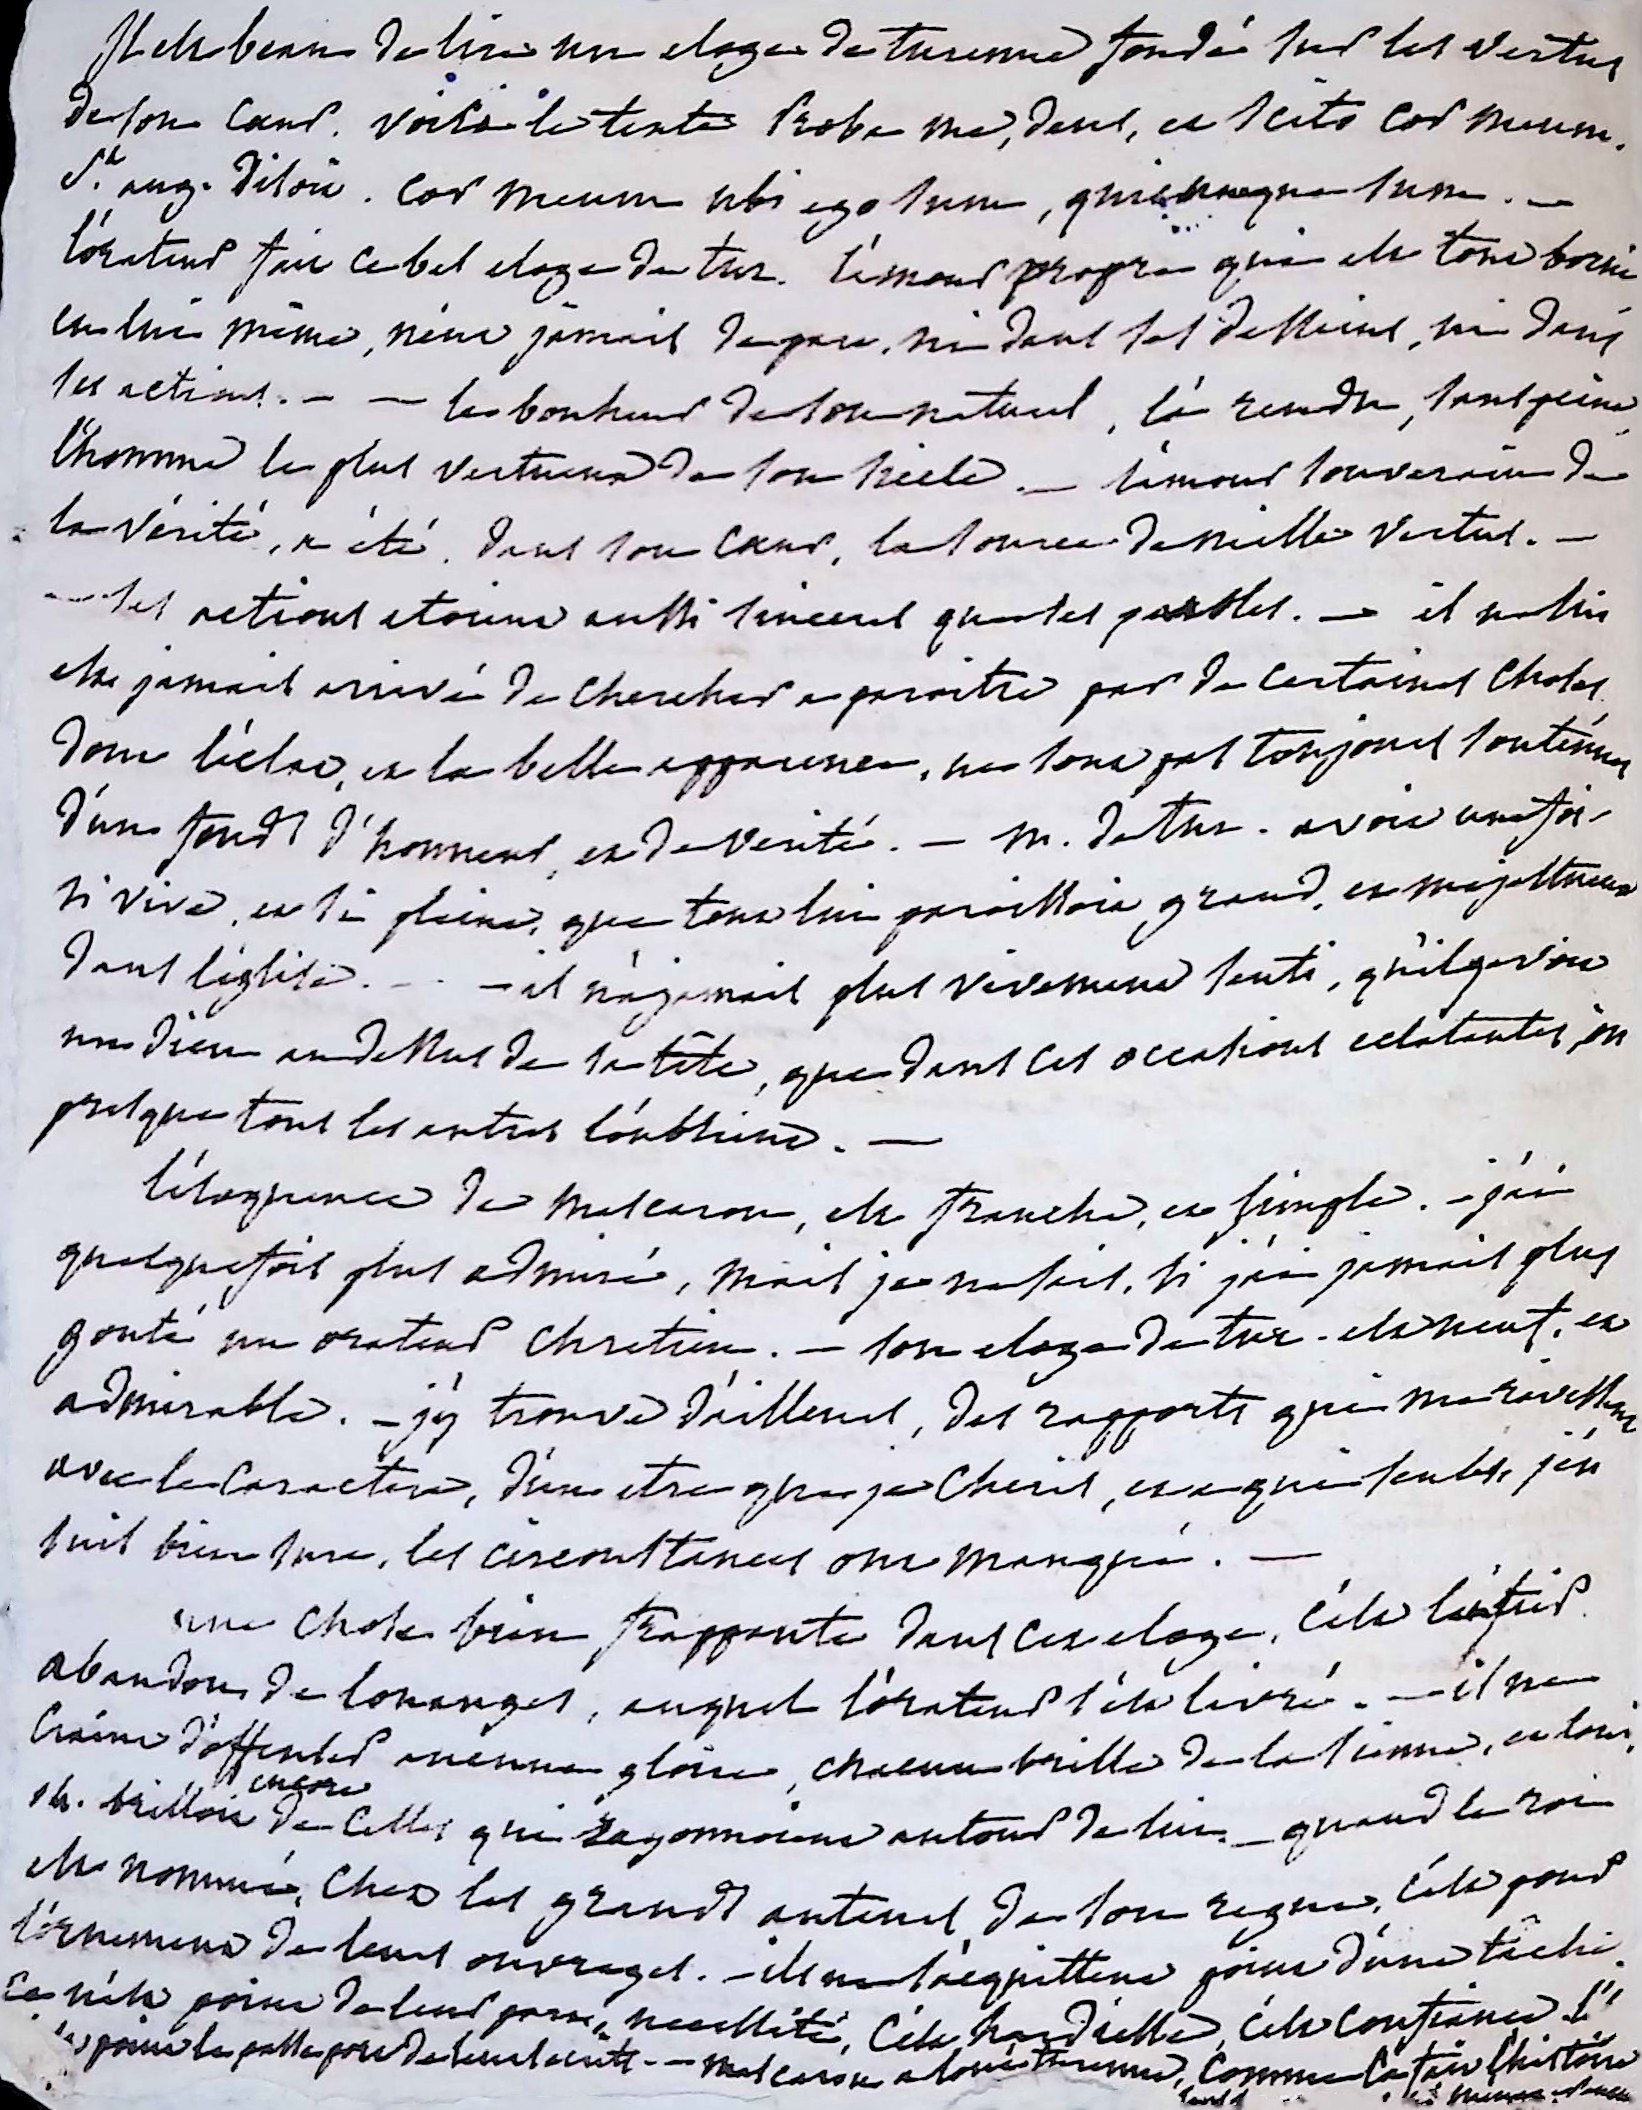 Il est beau de lire un eloge de turenne fondé sur les vertus
de son cœur. voici le texte Proba me, deus, et scito cor meum.
St. aug. disoit. cor meum ubi ego sum, quicunque sum. —
l'orateur fait ce bel eloge de tur. l'amour propre qui est tout borné
en lui même, n'eut jamais de part, ni dans ses desseins, ni dans
ses actions. — — le bonheur de son naturel, l'a rendu, sans peine,
l'homme le plus vertueux de son siecle. — l'amour souverain de
la vérité, a été, dans son cœur, la source de mille vertus. —
— ses actions etoient aussi sinceres que ses paroles. — il ne lui
est jamais arrivé de chercher a paroitre par de certaines choses
dont l'éclat, et la belle apparence, ne sont pas toujours soutenues
d'un fonds d'honneur, et de verité. — M. de tur. avoit une foi
si vive, et si pleine, que tout lui paroissoit grand, et majestueux
dans l'église. — — il n'a jamais plus vivement senti, qu'il y avoit
un dieu au dessus de sa tête, que dans ces occasions eclatantes, où
presque tous les autres l'oublient. —
l'éloquence de Mascaron, est franche, et simple. — j'ai
quelquefois plus admiré, mais je ne sais, si j'ai jamais plus
gouté un orateur chretien. — son eloge de tur. est neuf, et
admirable. — j'y trouve d'ailleurs, des rapports qui me ravissent
avec le caractere, d'un etre que je cheris, et a qui seules, j'en
suis bien sure, les circonstances ont manqué. —
une chose bien frappante dans cet eloge, c'est l'entier
abandon de louanges, auquel l'orateur s'est livré. — il ne
craint d'offenser aucune gloire, chacun brille de la sienne, et louis
14. brilloit encore de celles qui rayonnoient autour de lui. — quand le roi
est nommé, chez les grands auteurs de son regne, c'est pour
l'ornement de leurs ouvrages. — ils ne s'acquittent point d'une tâche.
ce n'est point de leur part, necessité, c'est hardiesse, c'est confiance.
point le passeport de leurs ecrits. — Mascaron a loué turenne, comme l'a fait l'histoire